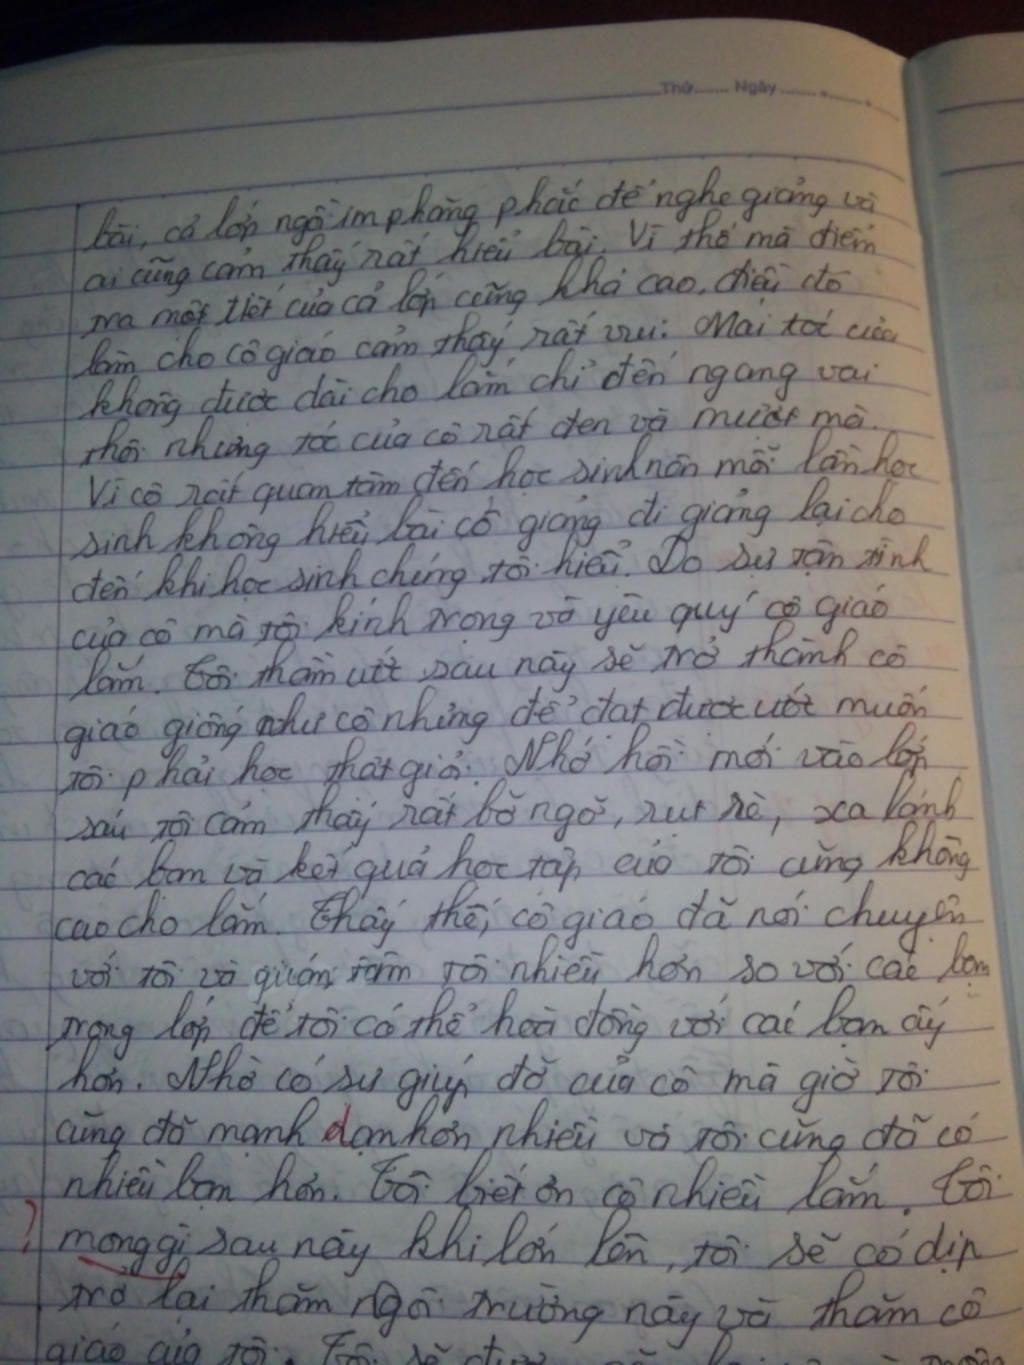 Thứ....... Ngày ....... . ....... . ....
bài, cả lớp ngồi im phăng phắc để nghe giảng và
ai cũng cảm thấy rất hiểu bài. Vì thế mà điểm
ma một tiết của cả lớp cũng khá cao, điều đó
làm cho cô giáo cảm thấy rất vui. Mái tóc của
không được dài cho lắm chỉ đến ngang vai
thôi nhưng tóc của cô rất đen và mượt mà.
Vì cô rất quan tâm đến học sinh nên mỗi lần học
sinh không hiểu bài cô giảng đi giảng lại cho
đến khi học sinh chúng tôi hiểu. Do sự tận tình
của cô mà tôi kính trọng và yêu quý cô giáo
lắm. Tôi thầm ước sau này sẽ trở thành cô
giáo giống như cô nhưng để đạt được ước muốn
tôi phải học thật giỏi. Nhớ hồi mới vào lớp
sáu tôi cảm thấy rất bỡ ngỡ, rụt rè, xa lánh
các bạn và kết quả học tập của tôi cũng không
cao cho lắm. Thấy thế, cô giáo đã nói chuyện
với tôi và quan tâm tôi nhiều hơn so với các bạn
trong lớp để tôi có thể hoà đồng với các bạn ấy
hơn. Nhờ có sự giúp đỡ của cô mà giờ tôi
cũng đã mạnh dạn hơn nhiều và tôi cũng đã có
nhiều bạn hơn. Tôi biết ơn cô nhiều lắm. Tôi
? mong gì sau này khi lớn lên, tôi sẽ có dịp
trở lại thăm ngôi trường này và thăm cô
giáo của tôi. Tôi sẽ được